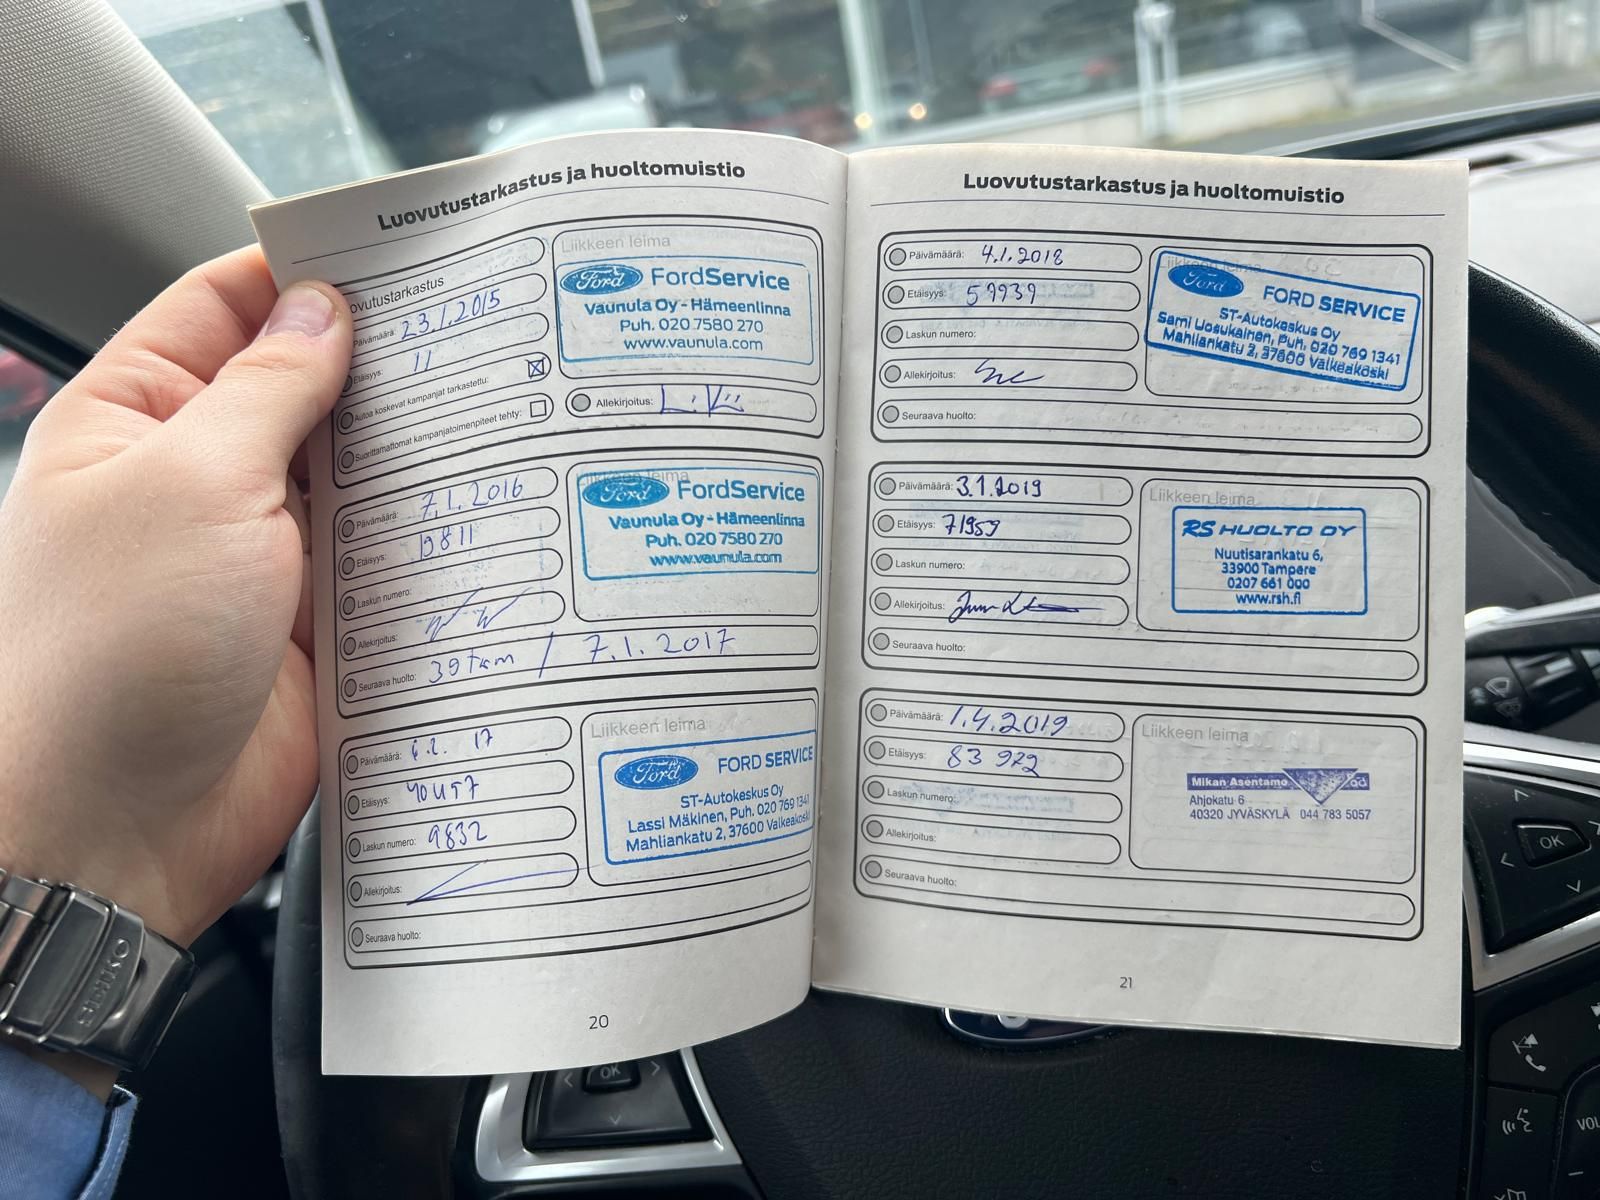 Luovutustarkastus ja huoltomuistio
ovutustarkastus
Päivämäärä: 23.1.2015
Etäisyys: 11
Autoa koskevat kampanjat tarkastettu:
Suorittamattomat kampanjatoimenpiteet tehty:
Liikkeen leima
Ford FordService
Vaunula Oy - Hämeenlinna
Puh. 020 7580 270
www.vaunula.com
Allekirjoitus:
Päivämäärä: 7.1.2016
Etäisyys: 19811
Laskun numero:
Allekirjoitus:
Seuraava huolto: 39 tkm / 7.1.2017
Liikkeen leima
Ford FordService
Vaunula Oy - Hämeenlinna
Puh. 020 7580 270
www.vaunula.com
Päivämäärä: 17
Etäisyys:
Laskun numero: 9832
Allekirjoitus:
Seuraava huolto:
Liikkeen leima
Ford FORD SERVICE
ST-Autokeskus Oy
Lassi Mäkinen, Puh. 020 769 1341
Mahliankatu 2, 37600 Valkeakoski
20
Luovutustarkastus ja huoltomuistio
Päivämäärä: 4.1.2018
Etäisyys: 59939
Laskun numero:
Allekirjoitus:
Seuraava huolto:
Liikkeen leima
Ford FORD SERVICE
ST-Autokeskus Oy
Sami Uosukainen, Puh. 020 769 1341
Mahliankatu 2, 37600 Valkeakoski
Päivämäärä: 3.1.2019
Etäisyys: 71959
Laskun numero:
Allekirjoitus:
Seuraava huolto:
Liikkeen leima
RS HUOLTO OY
Nuutisarankatu 6,
33900 Tampere
0207 661 000
www.rsh.fi
Päivämäärä: 1.4.2019
Etäisyys: 83 972
Laskun numero:
Allekirjoitus:
Seuraava huolto:
Liikkeen leima
Mikan Asentamo
Ahjokatu 6
40320 JYVÄSKYLÄ 044 783 5057
21
OK
OK
VOL